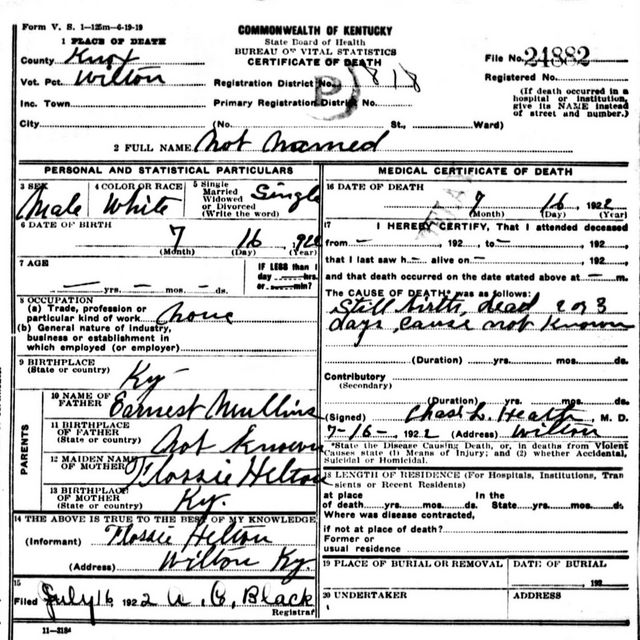 Form V. S. 1—125m—6-19-19
COMMONWEALTH OF KENTUCKY
State Board of Health
BUREAU OF VITAL STATISTICS
CERTIFICATE OF DEATH
1 PLACE OF DEATH
County Knox
Vot. Pct. Wilton
Inc. Town
City
File No. 24882
Registered No.
(If death occurred in a
hospital or institution,
give its NAME instead
of street and number.)
Registration District No. 1818
Primary Registration District No.
(No. St., Ward)
2 FULL NAME Not Named
PERSONAL AND STATISTICAL PARTICULARS
3 SEX
Male
4 COLOR OR RACE
White
5 Single
Married
Widowed
or Divorced
(Write the word)
Single
6 DATE OF BIRTH
7 16 , 922
(Month) (Day) (Year)
7 AGE
— yrs. — mos. — ds.
IF LESS than 1
day hrs.
or min.?
8 OCCUPATION
(a) Trade, profession or
particular kind of work none
(b) General nature of industry,
business or establishment in
which employed (or employer)
9 BIRTHPLACE
(State or country)
Ky
PARENTS
10 NAME OF
FATHER Earnest Mullins
11 BIRTHPLACE
OF FATHER
(State or country)
Not Known
12 MAIDEN NAME
OF MOTHER Flossie Helton
13 BIRTHPLACE
OF MOTHER
(State or country)
Ky.
14 THE ABOVE IS TRUE TO THE BEST OF MY KNOWLEDGE
(Informant) Flossie Helton
(Address) Wilton Ky.
15
Filed July 16 1922 Black
Registrar
11—3184
MEDICAL CERTIFICATE OF DEATH
16 DATE OF DEATH
7 16 , 1922
(Month) (Day) (Year)
17 I HEREBY CERTIFY, That I attended deceased
from — , 192 , to — , 192 ,
that I last saw h— alive on — , 192 ,
and that death occurred on the date stated above at — m.
The CAUSE OF DEATH* was as follows:
Still birth, dead 2 or 3
days, cause not known
(Duration) yrs. mos. ds.
Contributory
(Secondary)
(Duration) yrs. mos. ds.
(Signed) Chas. L. Heath, M. D.
7-16-, 1922 (Address) Wilton
*State the Disease Causing Death, or, in deaths from Violent
Causes state (1) Means of Injury; and (2) whether Accidental,
Suicidal or Homicidal.
18 LENGTH OF RESIDENCE (For Hospitals, Institutions, Tran
sients or Recent Residents)
at place In the
of death yrs. mos. ds. State yrs. mos. ds.
Where was disease contracted,
if not at place of death?
Former or
usual residence
19 PLACE OF BURIAL OR REMOVAL
DATE OF BURIAL
192
20 UNDERTAKER
ADDRESS